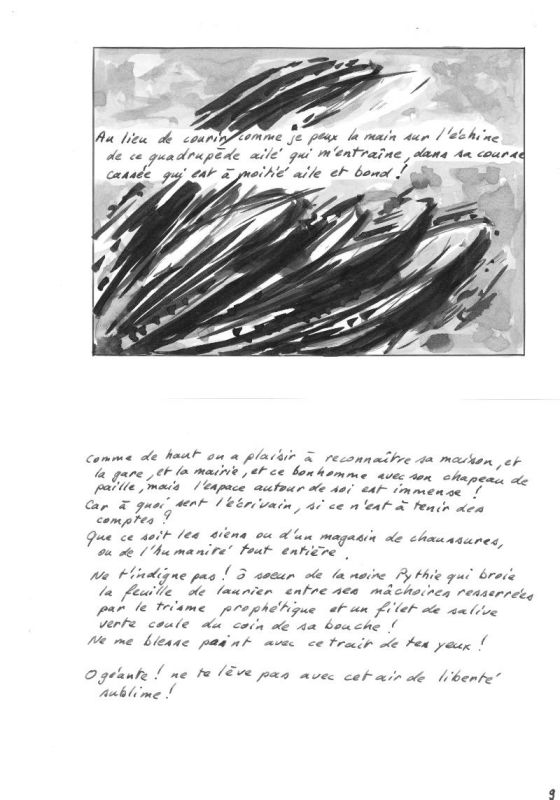 Au lieu de courir comme je peux la main sur l'échine
de ce quadrupède ailé qui m'entraîne, dans sa course
cassée qui est à moitié aile et bond !
Comme de haut on a plaisir à reconnaître sa maison, et
la gare, et la mairie, et ce bonhomme avec son chapeau de
paille, mais l'espace autour de soi est immense !
Car à quoi sert l'écrivain, si ce n'est à tenir des
comptes ?
Que ce soit les siens ou d'un magasin de chaussures,
ou de l'humanité tout entière.
Ne t'indigne pas ! ô soeur de la noire Pythie qui broie
la feuille de laurier entre ses mâchoires resserrées
par le trisme prophétique et un filet de salive
verte coule du coin de sa bouche !
Ne me blesse point avec ce trait de tes yeux !
O géante ! ne te lève pas avec cet air de liberté
sublime !
9